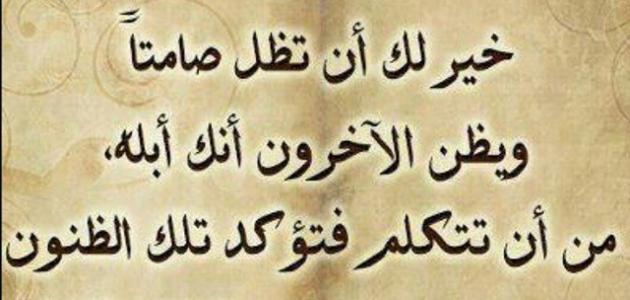 خير لك أن تظل صامتاً
ويظن الآخرون أنك أبله،
من أن تتكلم فتؤكد تلك الظنون